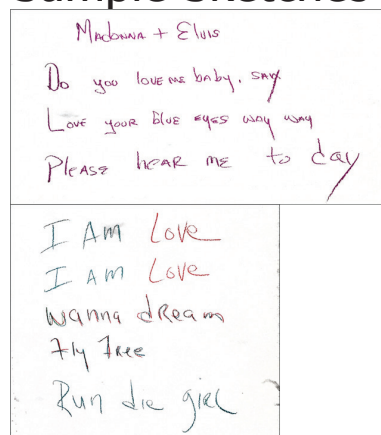 Sample Sketches
Madonna + Elvis
Do you love me baby, say
Love your blue eyes way way
Please hear me to day
I Am Love
I Am Love
wanna dream
Fly Free
Run die girl